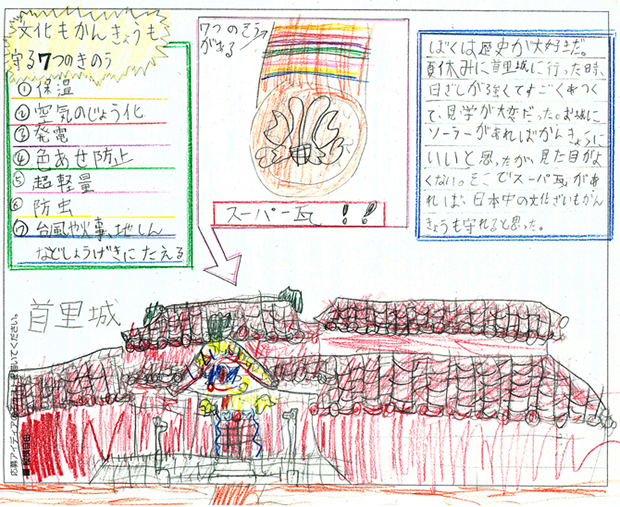 文化もかんきょうも
守る7つのきのう
① 保温
② 空気のじょう化
③ 発電
④ 色あせ防止
⑤ 超軽量
⑥ 防虫
⑦ 台風や火事、地しん
などしょうげきにたえる
7つのそう
がある
スーパー瓦!!
ぼくは歴史が大好きだ。
夏休みに首里城に行った時、
日ざしが強くてすごくあつく
て、見学が大変だった。お城に
ソーラーがあればかんきょうに
いいと思ったが、見た目がよ
くない。そこでスーパー瓦があ
れば、日本中の文化ざいもかん
きょうも守れると思った。
首里城